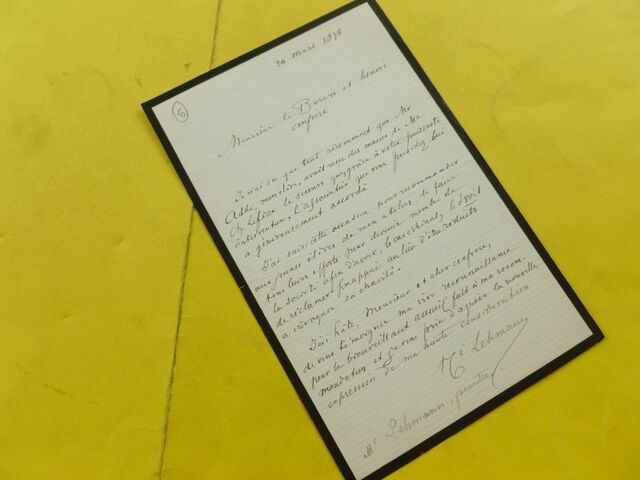 6
24 mars 1878
Monsieur le Baron et honoré
confrère
Je n'ai su que tout récemment que Mr
Addé, mon élève, avait reçu des mains de Mr
le secours que, grâce à votre puissante
intervention, l'association que vous présidez lui
a généreusement accordé
J'ai saisi cette occasion pour recommander
aux jeunes élèves de mon atelier de faire
tous leurs efforts pour devenir membre de
la société afin d'avoir, le cas échéant, le droit
de réclamer un appui au lieu d'être réduits
à invoquer sa charité.
J'ai hâte, Monsieur et cher confrère,
de vous témoigner ma vive reconnaissance
pour le bienveillant accueil fait à ma recom-
mandation et je vous prie d'agréer la nouvelle
expression de ma haute considération
Hi Lehmann
Mr Lehmann, peintre